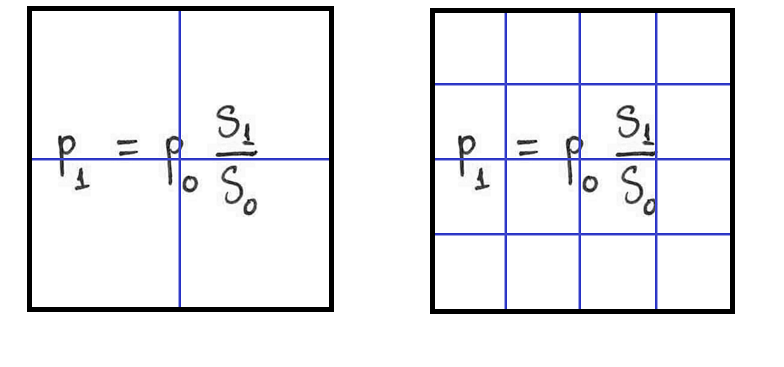 p₁ = p₀ S₁/S₀
p₁ = p₀ S₁/S₀